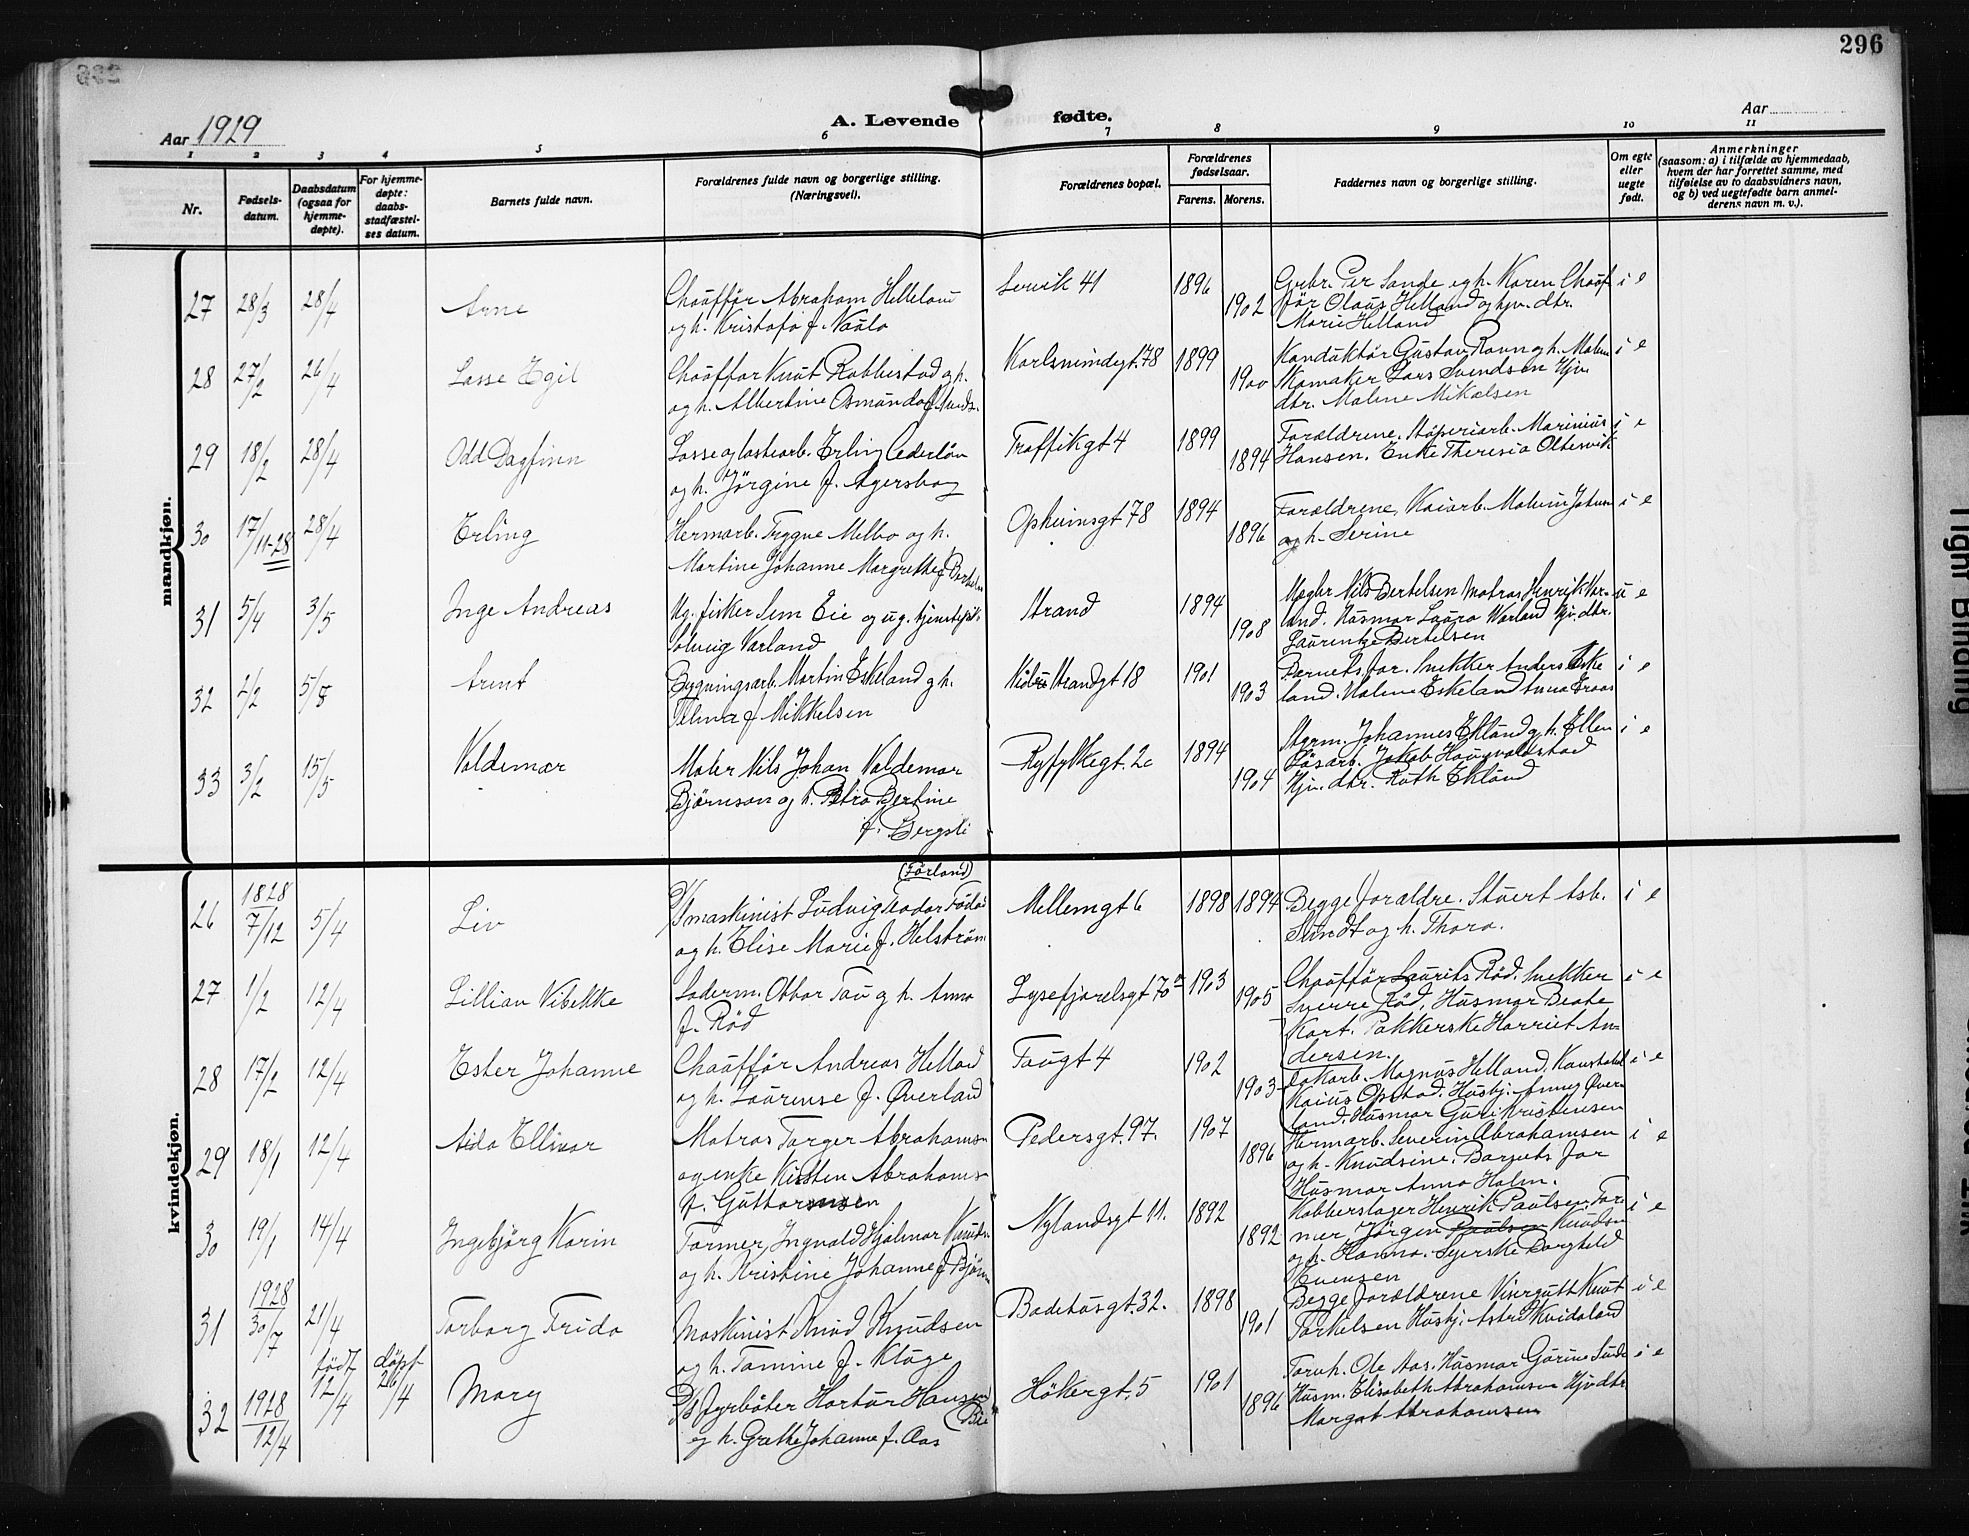 296
Aar 1929
A. Levende fødte.
Aar
1 2 3 4 5 6 7 8 9 10 11
Nr.
Fødsels-
datum.
Daabsdatum
(ogsaa for
hjemme-
døpte).
For hjemme-
døpte:
daabs-
stadfæstel-
ses datum.
Barnets fulde navn.
Forældrenes fulde navn og borgerlige stilling.
(Næringsvei).
Forældrenes bopæl.
Forældrenes
fødselsaar.
Farens. Morens.
Faddernes navn og borgerlige stilling.
Om egte
eller
uegte
født.
Anmerkninger
(saasom: a) i tilfælde av hjemmedaab,
hvem der har forrettet samme, med
tilføielse av to daabsvidners navn,
og b) ved uegtefødte barn anmel-
derens navn m. v.).
mandkjøn.
27 28/3 28/4 Arne
Chauffør Abraham Helleland
og h. Kristofa f. Naalo
41 1896 1902
Grbr. Per Sande og h. Karen Chauf
før Olaus Helland og hjv. dtr.
Marie Helland
i e
28 27/2 26/4 Lasse Egil
Chauffør Knut Rabbestad og h.
og h. Albertine Osmunda f.
Karlsmindegt. 78 1899 1900
Konduktør Gustav Ravn og h. Malene
Skomaker Lars Svendsen Hjv.
dtr. Malene Mikalsen
i e
29 18/2 28/4 Odd Dagfinn
Losse og lastearb. Erling Cederløv
og h. Jørgine f. Agersborg
Traffikgt 4 1899 1894
Forældrene. Støperiarb. Marinius
Hansen. Enke Theresia Oltesvik
i e
30 17/11-28 28/4 Erling
Hermarb. Trygve Melbo og h.
Martine Johanne Margrethe f. Bertelsen
Opheimsgt 78 1894 1896
Forældrene, Kaiarb. Malvin Johan
og h. Serine
i e
31 5/4 3/5 Inge Andreas
Ug. fisker Sem Eie og ug. tjenestepik.
Solveig Varland
Strand 1894 1908
Nils Bertelsen Matros Henrik Var-
land. Husmor Laura Varland Hjv. dtr.
Laurentze Bertelsen
u e
32 2/2 5/8 Arnt
Bygningsarb. Martin Eskeland og h.
Telma f. Mikkelsen
Strandgt 18 1901 1903
Barnets far. Snekker Anders Eske
land. Malene Eskeland Anna
i e
33 3/2 15/5 Valdemar
Maler Nils Johan Valdemar
Bjørnson og h. Petra Bertine
f. Bergsli
Ryfylkegt 2c 1894 1904
Styrm. Johannes Eklund og h. Ellen
Løsarb. Jakob Haugvaldstad
Hjv. dtr. Ruth Eklund
i e
kvindekjøn.
26 1828 7/12 5/4 Liv
(Førland)
D/S maskinist Ludvig Teodor
og h. Elise Marie f. Helstrøm
Mellemgt 6 1898 1894
Begge forældre. Stuert Asb.
Sundt og h. Thora.
i e
27 1/2 12/4 Lillian Vibekke
Loderm. Obbar Tau og h. Anna
f. Rød
Lysefjordsgt 70 1903 1905
Chauffør Laurits Rød. Snekker
Sverre Rød. Husmor Beate
Kort. Pakkerske Harriet An-
dersen.
i e
28 17/2 12/4 Ester Johanne
Chauffør Andreas Helland
og h. Laurense f. Øverland
Taugt 4 1902 1903
Magnus Helland.
Kaius Opstad. Husbj. Anny Øver
land. Husmor Guri Kristensen
i e
29 18/1 12/4 Aida Ellinor
Matros Torger Abrahams-
og enke Kirsten Abrahams-
f. Guttormsen
Pedersgt. 97. 1907 1896
Hermarb. Severin Abrahamsen
og h. Knudsine. Barnets far
Husmor Anna Holm.
i e
30 19/1 14/4 Ingebjørg Karin
Former, Ingvald Hjalmar Knuds-
og h. Kristine Johanne f. Bjørn
Nylandsgt 11. 1892 1892
Kobberslager Henrik Paulsen For
mer, Jørgen Paulsen Knudsen
og h. Hanna. Syerske Borghild
Evensen
i e
31 1928 30/7 21/4 Torborg Frida
Maskinist Knud Knudsen
og h. Tomine f. Kluge
Badehusgt. 32. 1898 1901
Begge forældrene Visergutt Knut
Torkelsen Husbj. Astri Kvidaland
i e
32 1928 12/4 født 12/4 døpt 26/4 Mary
D/S fyrbøter Hartur Hansen
(Bie)
og h. Grethe Johanne f. Aas
Høkergt. 5 1901 1896
Torvh. Ole Aas. Husmor Gurine Lude
Husm. Elisabeth Abrahamsen Hjv dtr
Margot Abrahamsen
i e